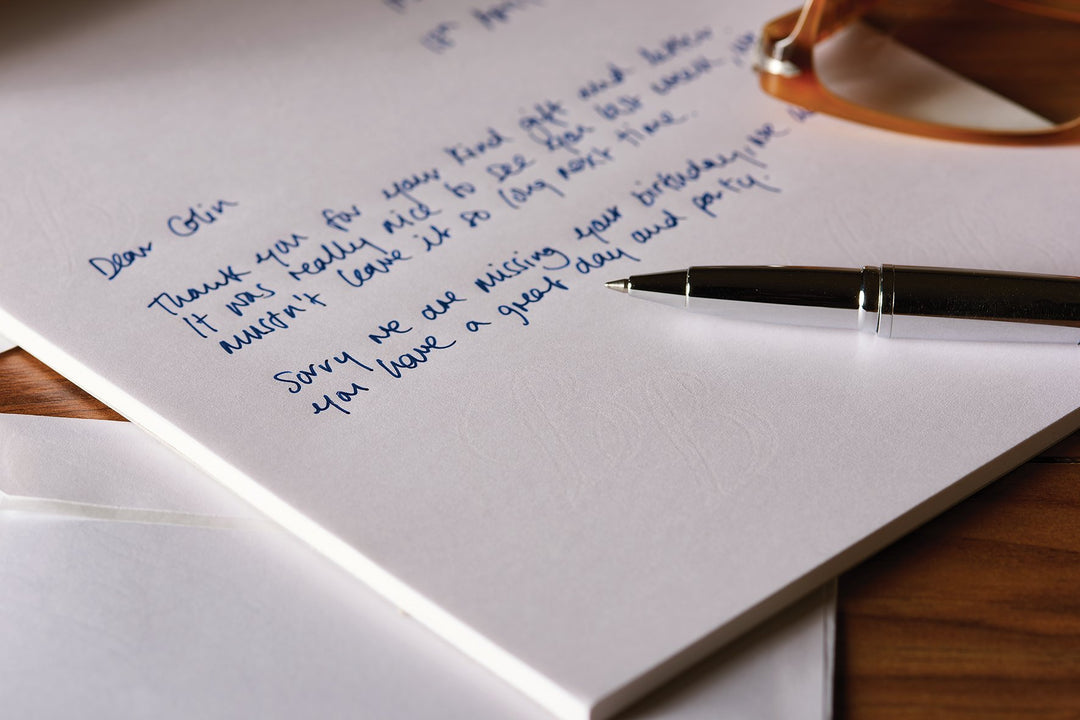 18th April
Dear Colin
Thank you for your kind gift and letter
It was really nice to see you last week,
mustn't leave it so long next time.
Sorry we are missing your birthday, we
you have a great day and party.